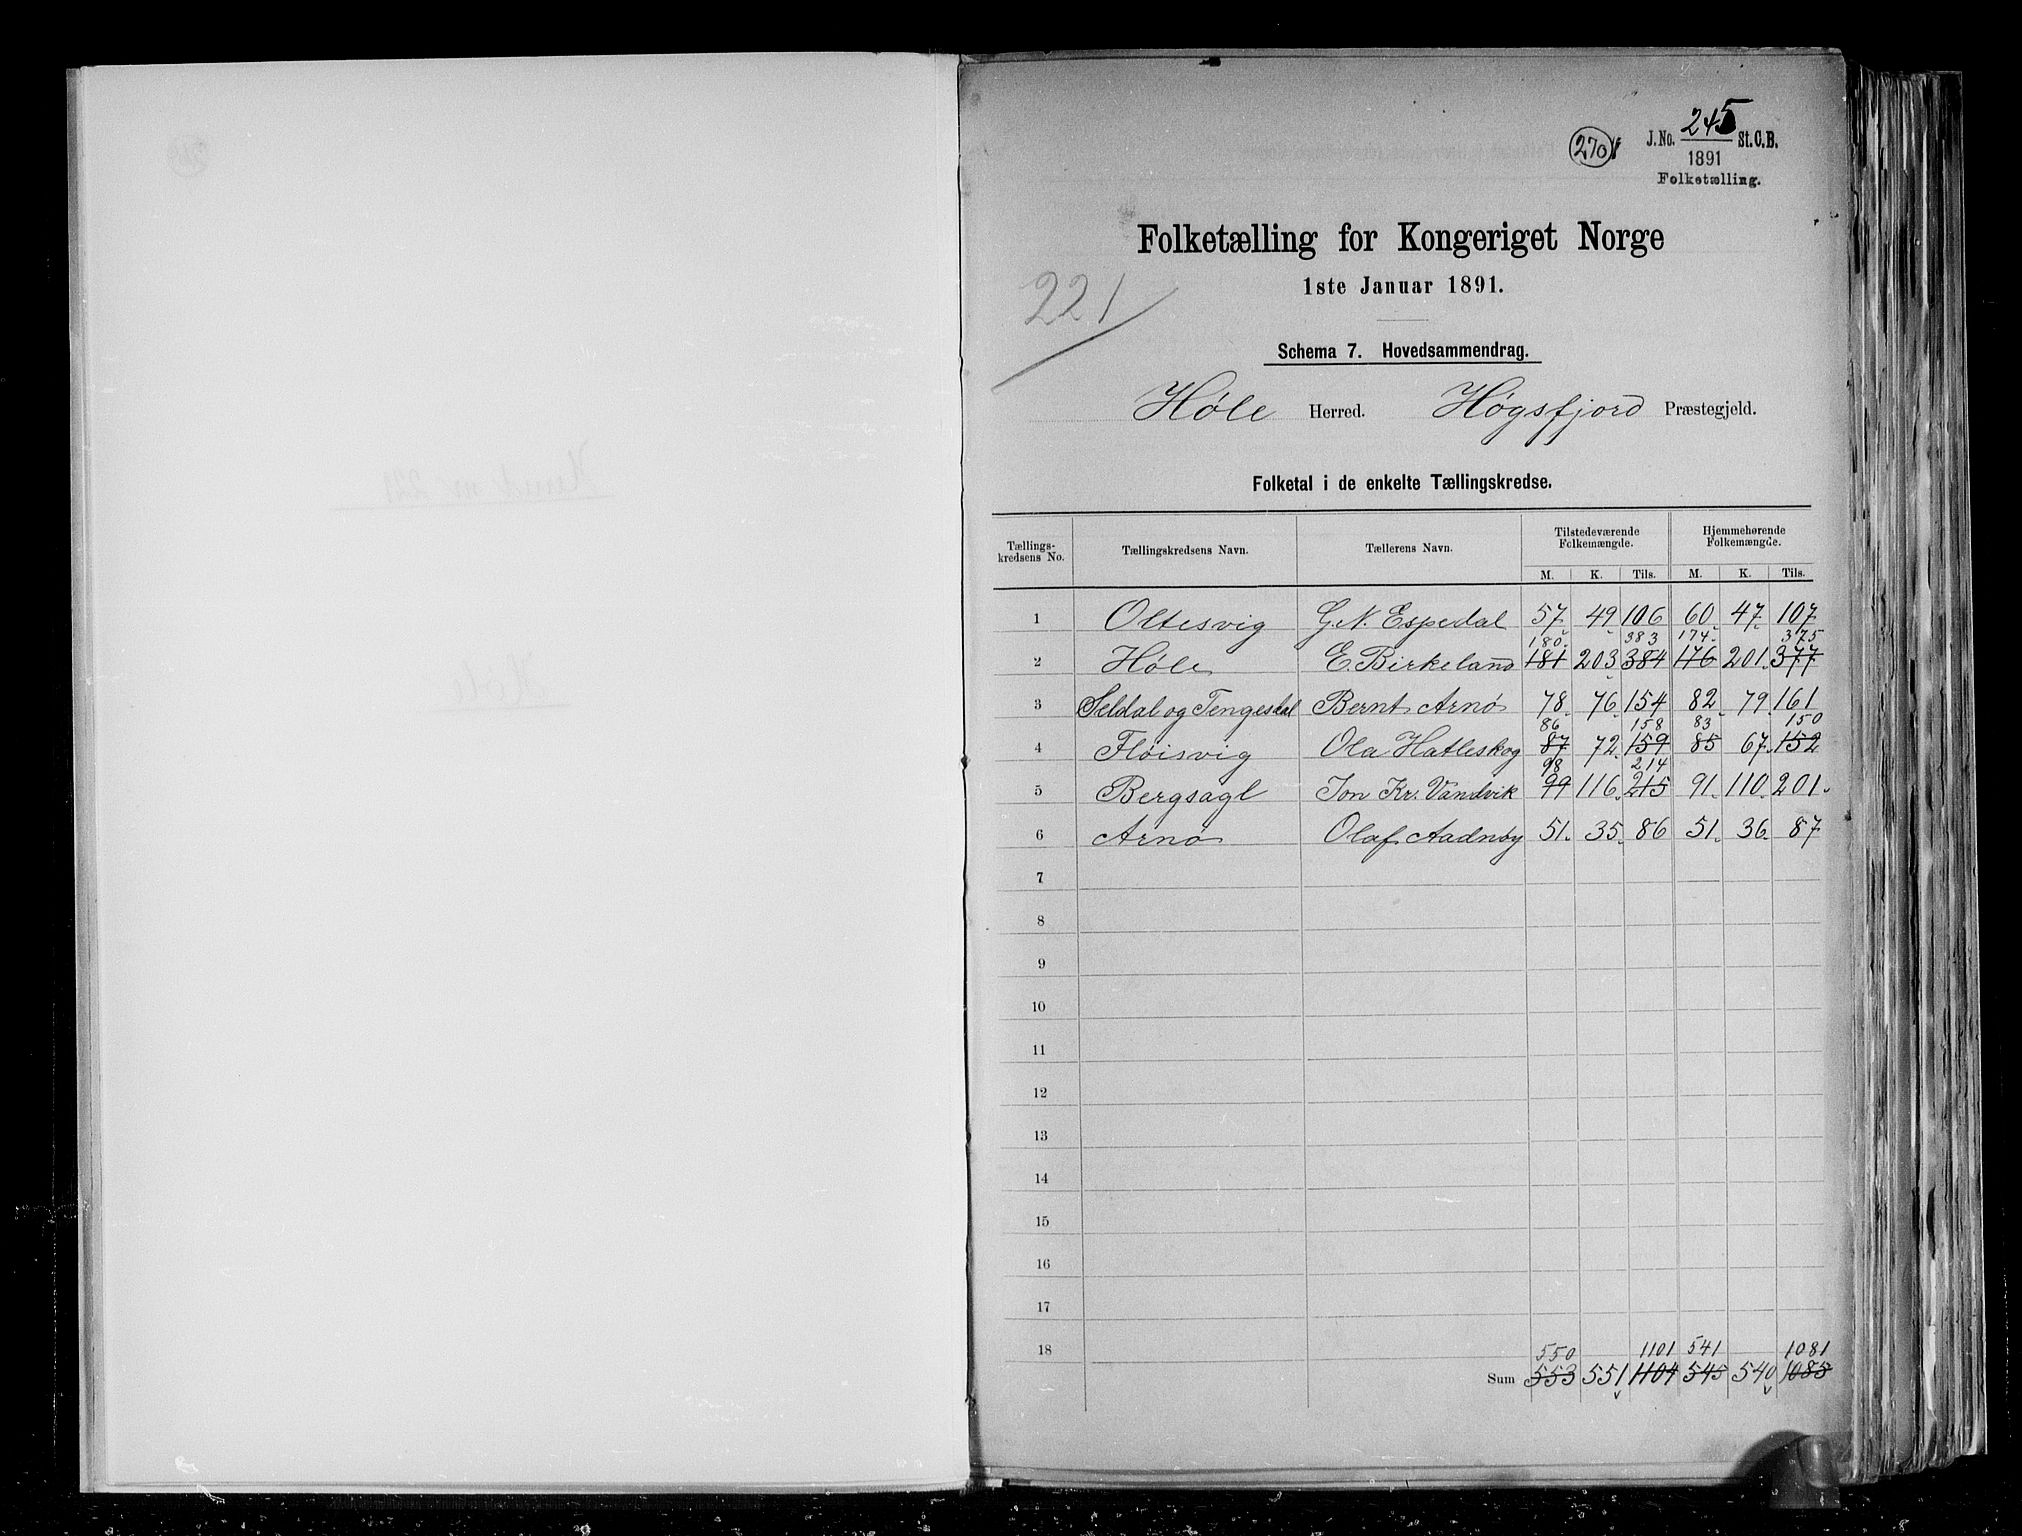 270
J. No. 245 St. C. B.
1891
Folketælling.
Folketælling for Kongeriget Norge
1ste Januar 1891.
221
Schema 7. Hovedsammendrag.
Høle Herred. Høgsfjord Præstegjeld.
Folketal i de enkelte Tællingskredse.
Tællings-kredsens No. Tællingskredsens Navn. Tællerens Navn. Tilstedeværende Folkemængde. Hjemmehørende Folkemængde.
M. K. Tils. M. K. Tils.
1 Oltesvig G. N. Espedal 57 49 106 60 47 107
180 383 174 375
2 Høle E. Birkeland 181 203 384 176 201 377
3 Seldal og Tengesdal Bernt Arnø 78 76 154 82 79 161
86 158 83 150
4 Fløisvig Ola Hatleskog 87 72 159 85 67 152
98 214
5 Bergsagl Jon Kr. Vandvik 99 116 215 91 110 201
6 Arnø Olaf Aadnøy 51 35 86 51 36 87
7
8
9
10
11
12
13
14
15
16
17
18
550 1101 541 1081
Sum 553 551 1104 545 540 1085